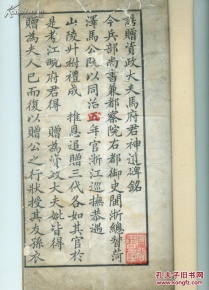 誥贈資政大夫馬府君神道碑銘
今兵部尚書兼都察院右都御史閩浙總督菏
澤馬公既以同治五年官浙江巡撫恭遇
山陵升祔禮成推恩追贈三代各如其官於
是考江畹府君得贈為資政大夫妣皆得
贈為夫人已而復以贈公之行狀授其友孫衣